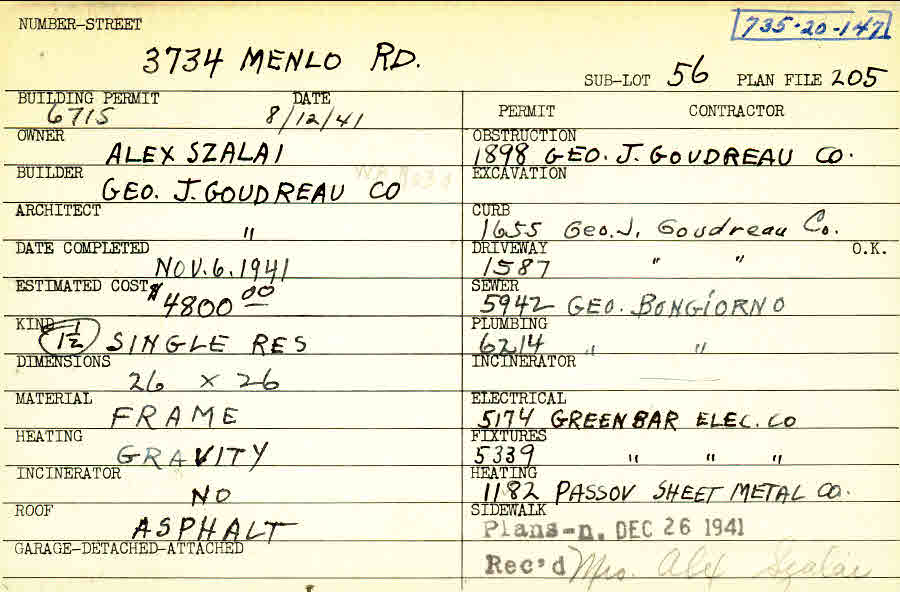 NUMBER-STREET
735-20-147
3734 MENLO RD.
SUB-LOT 56 PLAN FILE 205
BUILDING PERMIT DATE
6715 8/12/41
OWNER
ALEX SZALAI
BUILDER
GEO. J. GOUDREAU CO
ARCHITECT
"
DATE COMPLETED
NOV. 6. 1941
ESTIMATED COST
$4800 00
KIND
1 1/2 SINGLE RES
DIMENSIONS
26 x 26
MATERIAL
FRAME
HEATING
GRAVITY
INCINERATOR
NO
ROOF
ASPHALT
GARAGE-DETACHED-ATTACHED
PERMIT CONTRACTOR
OBSTRUCTION
1898 GEO. J. GOUDREAU CO.
EXCAVATION
CURB
1655 Geo. J. Goudreau Co.
DRIVEWAY O.K.
1587 " "
SEWER
5942 GEO. BONGIORNO
PLUMBING
6214 " "
INCINERATOR
ELECTRICAL
5174 GREENBAR ELEC. CO
FIXTURES
5339 " " "
HEATING
1182 PASSOV SHEET METAL CO.
SIDEWALK
Plans-n. DEC 26 1941
Rec'd Mrs. Alex Szalai